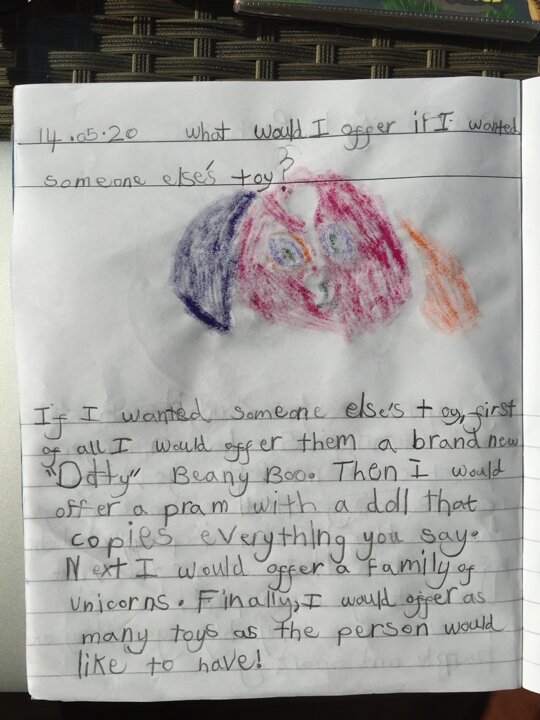 14.05.20 What would I offer if I wanted
someone else's toy?
If I wanted someone else's toy, first
of all I would offer them a brand new
"Dotty" Beany Boo. Then I would
offer a pram with a doll that
copies everything you say.
Next I would offer a family of
unicorns. Finally, I would offer as
many toys as the person would
like to have!